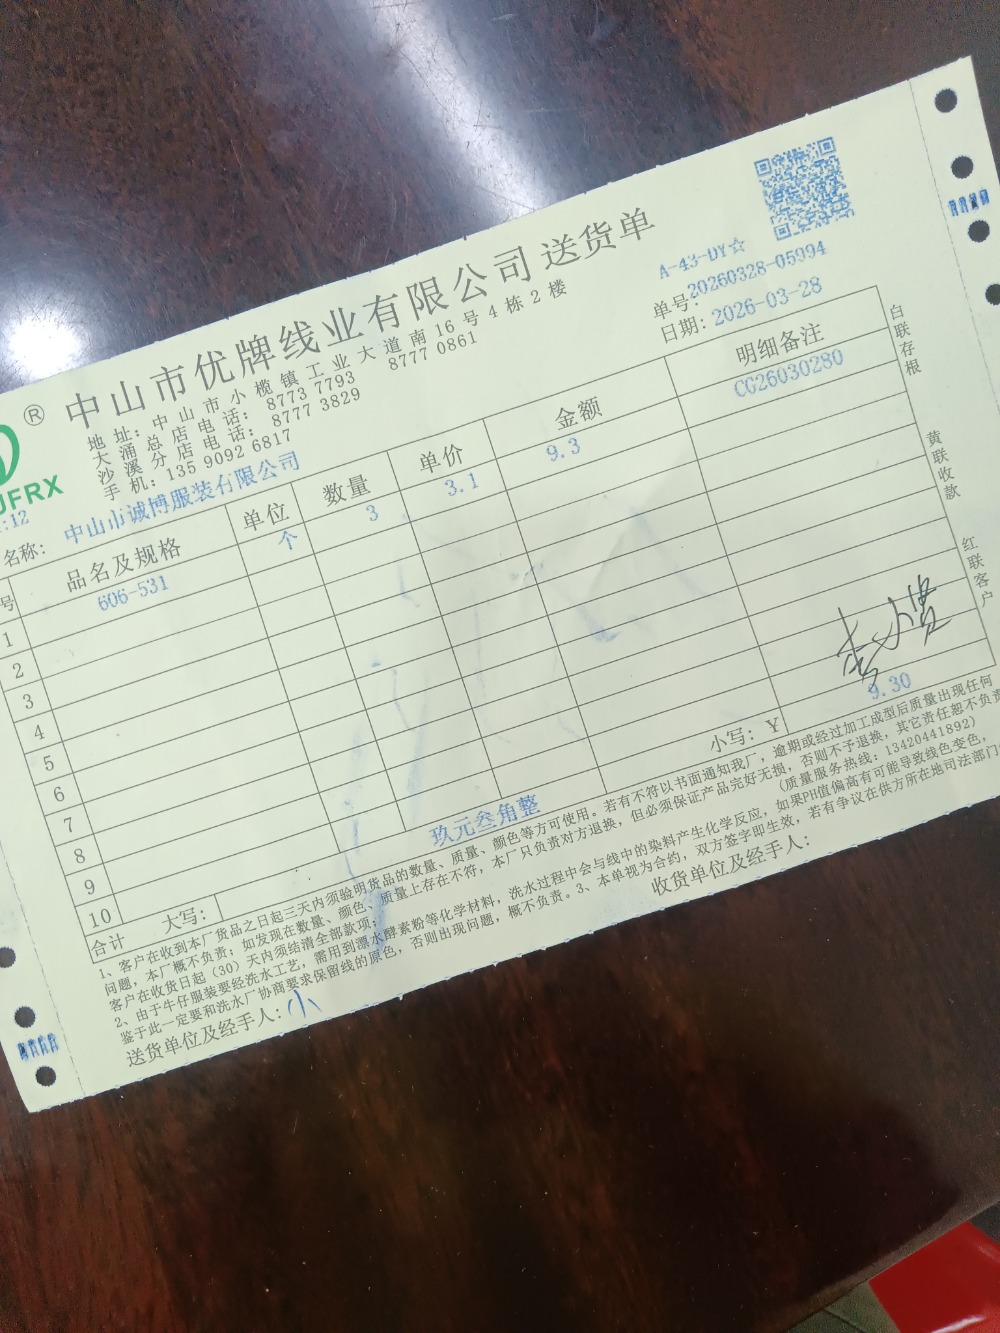 A-43-DY☆
® 中山市优牌线业有限公司 送货单
单号: 20260328-05994
日期: 2026-03-28
地址: 中山市小榄镇工业大道南16号4栋2楼
大涌总店电话: 8773 7793 8777 0861
沙溪分店电话: 8777 3829
手机: 135 9092 6817
JFRX
:12
名称: 中山市诚博服装有限公司
号 品名及规格 单位 数量 单价 金额 明细备注
1 606-531 个 3 3.1 9.3 CG26030280
2
3
4
5
6
7
8
9
10
合计 大写: 玖元叁角整 小写: ¥ 9.30
1、客户在收到本厂货品之日起三天内须验明货品的数量、质量、颜色等方可使用。若有不符以书面通知我厂，逾期或经过加工成型后质量出现任何
问题，本厂概不负责；如发现在数量、颜色、质量上存在不符，本厂只负责对方退换，但必须保证产品完好无损，否则不予退换，其它责任恕不负责
客户在收货日起（30）天内须结清全部款项； (质量服务热线: 13420441892)
2、由于牛仔服装要经洗水工艺，需用到漂水酵素粉等化学材料，洗水过程中会与线中的染料产生化学反应，如果PH值偏高有可能导致线色变色，
鉴于此一定要和洗水厂协商要求保留线的原色，否则出现问题，概不负责。3、本单视为合约，双方签字即生效，若有争议在供方所在地司法部门
送货单位及经手人: 小 收货单位及经手人:
白联存根
黄联收款
红联客户